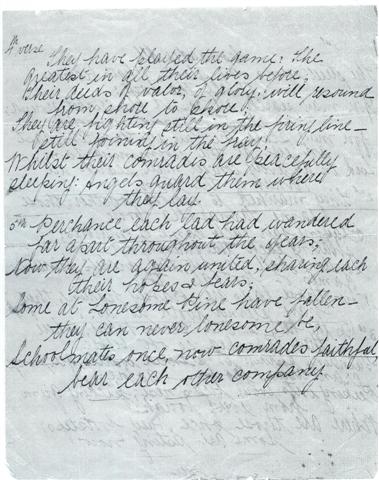 4th verse
They have played the game: The
greatest in all their lives before;
Their deeds of valor, of glory: will resound
from shore to shore!
They are fighting still in the firing line—
still joining in the fray;
Whilst their comrades are peacefully
sleeping: Angels guard them where
they lay.
5th Perchance each lad had wandered
far apart throughout the years;
Now they are again united; sharing each
their hopes & fears;
Some at Lonesome Pine have fallen—
they can never lonesome be,
Schoolmates once, now comrades faithful,
bear each other company.